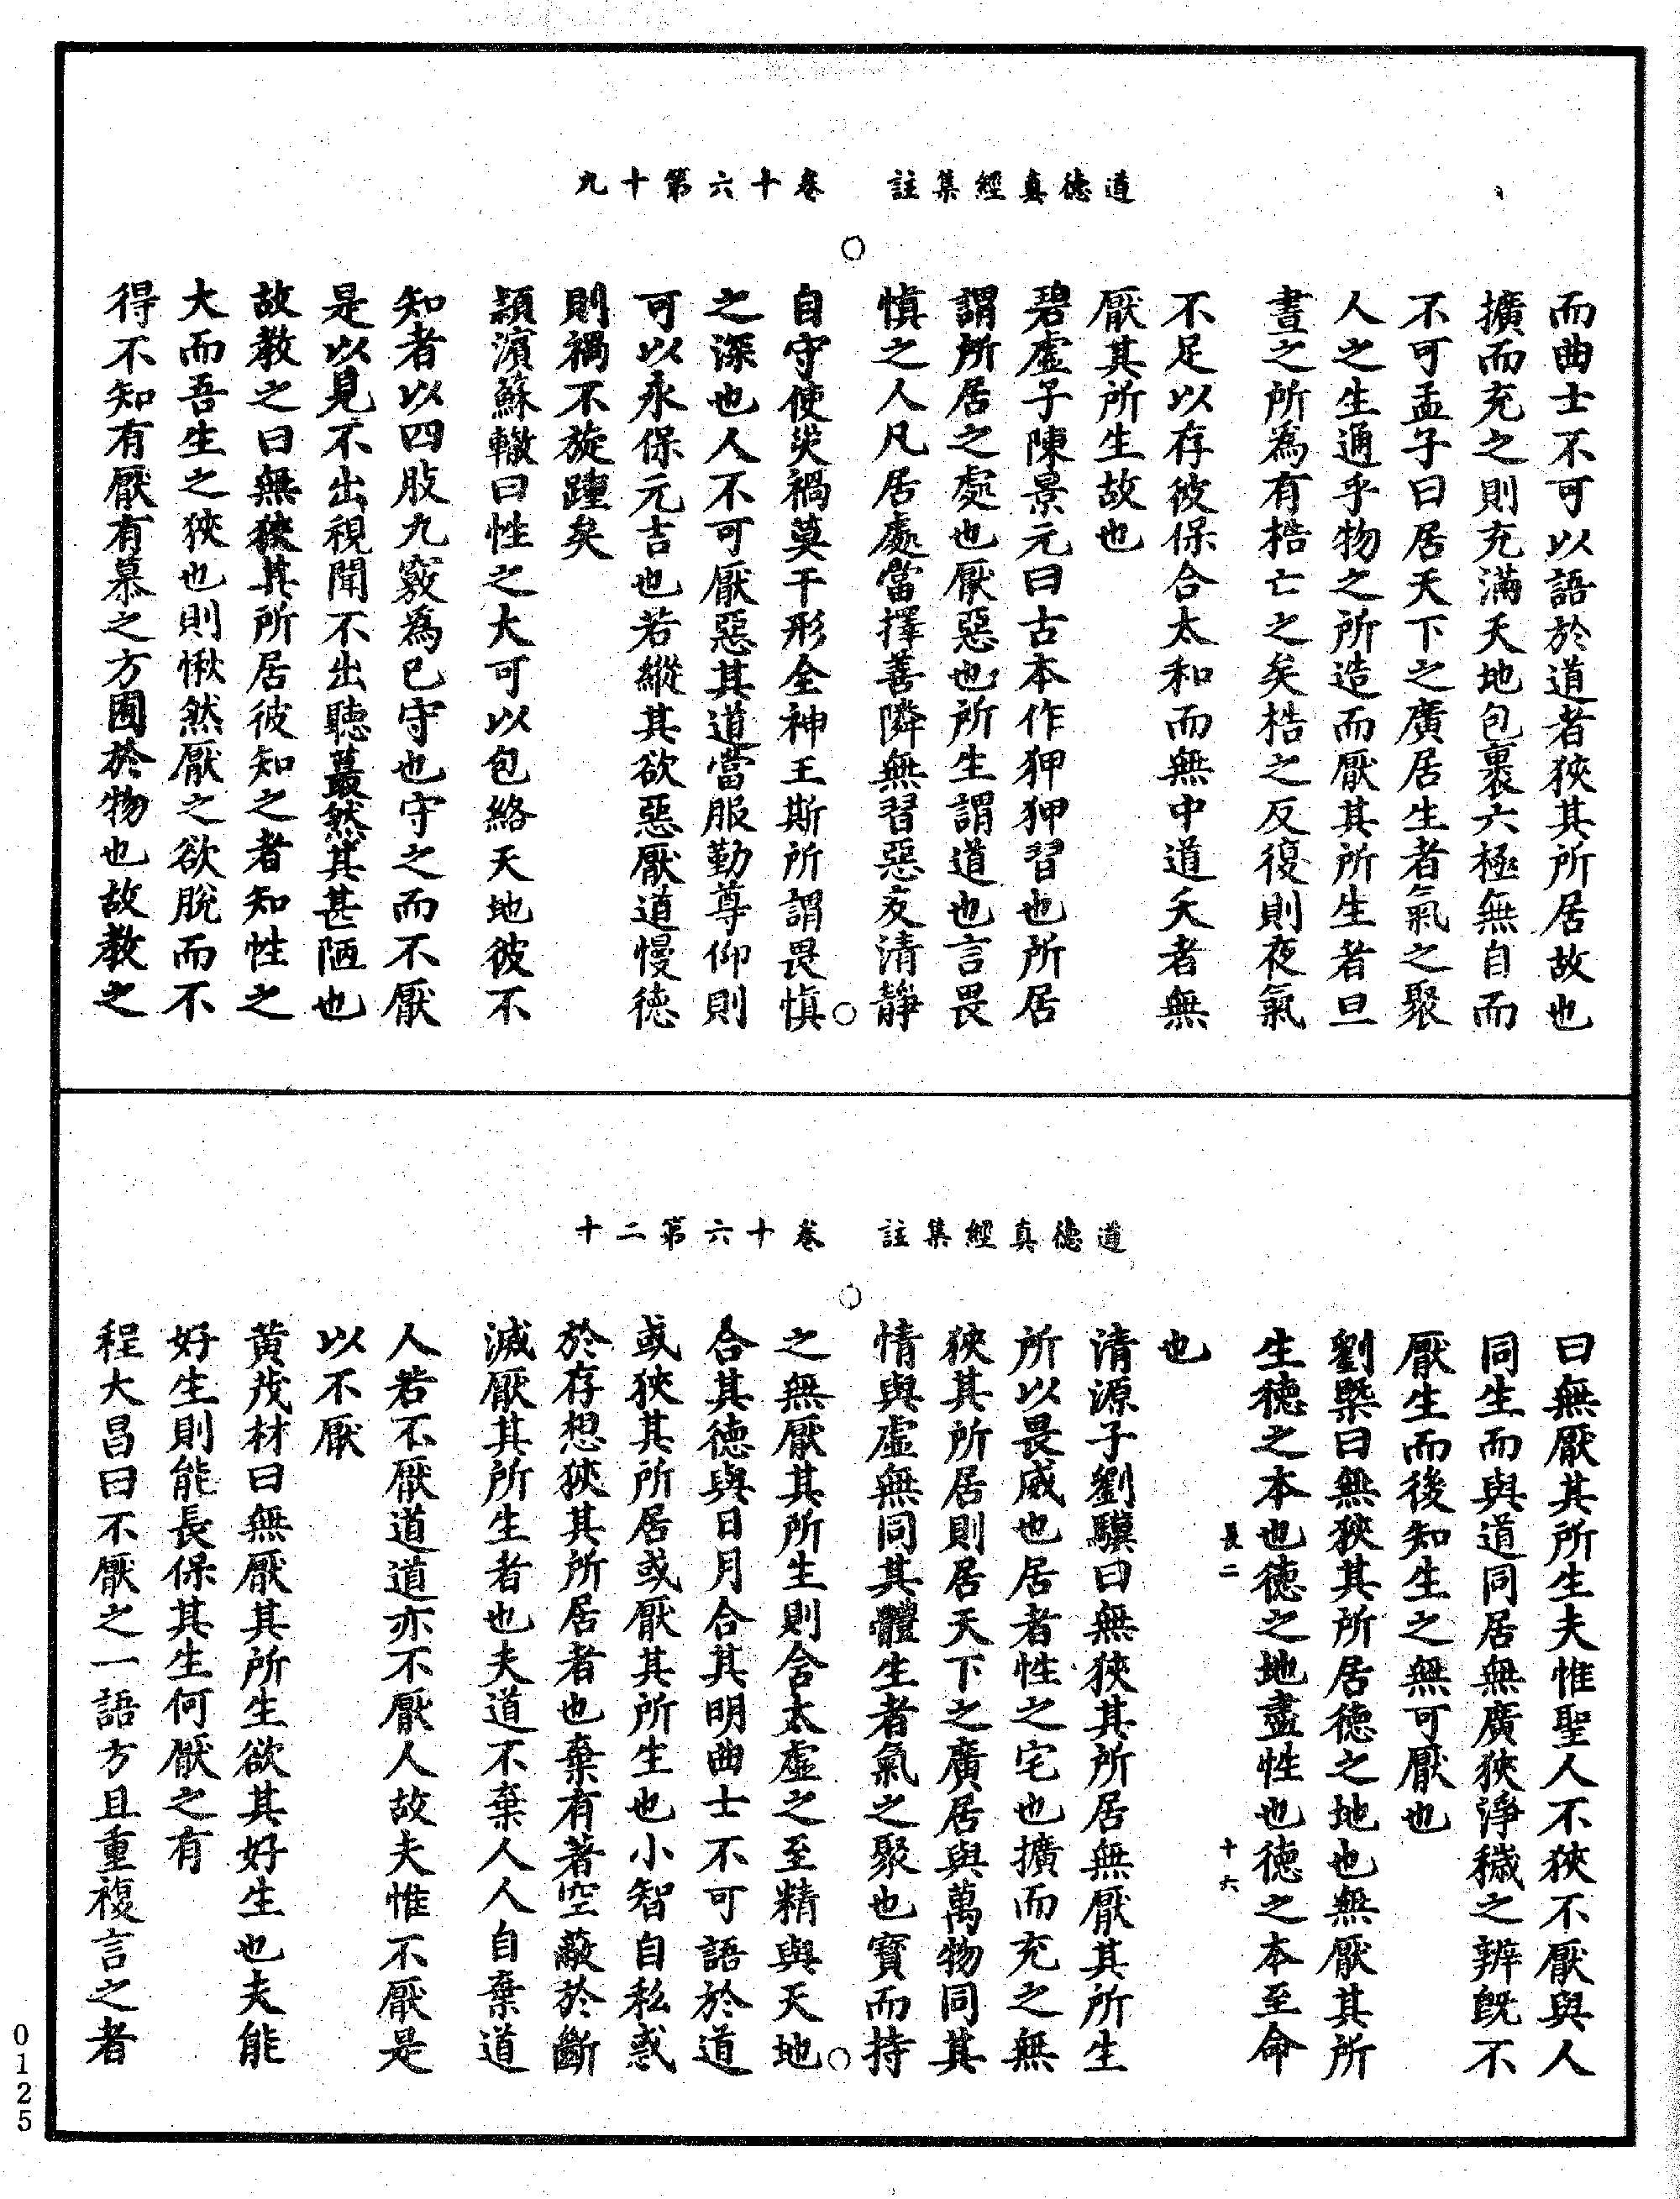 道德真經集註　卷十六第十九
而曲士不可以語於道者狹其所居故也
擴而充之則充滿天地包裹六極無自而
不可孟子曰居天下之廣居生者氣之聚
人之生通乎物之所造而厭其所生者旦
晝之所為有梏亡之矣梏之反復則夜氣
不足以存彼保合太和而無中道夭者無
厭其所生故也
碧虛子陳景元曰古本作狎狎習也所居
謂所居之處也厭惡也所生謂道也言畏
慎之人凡居處當擇善隣無習惡友清靜
自守使災禍莫干形全神王斯所謂畏慎
之深也人不可厭惡其道當服勤尊仰則
可以永保元吉也若縱其欲惡厭道慢德
則禍不旋踵矣
潁濱蘇轍曰性之大可以包絡天地彼不
知者以四肢九竅為已守也守之而不厭
是以見不出視聞不出聽蕞然其甚陋也
故教之曰無狹其所居彼知之者知性之
大而吾生之狹也則愀然厭之欲脫而不
得不知有厭有慕之方囿於物也故教之
道德真經集註　卷十六第二十
曰無厭其所生夫惟聖人不狹不厭與人
同生而與道同居無廣狹淨穢之辨旣不
厭生而後知生之無可厭也
劉槩曰無狹其所居德之地也無厭其所
生德之本也德之地盡性也德之本至命
也
長二　十六
清源子劉驥曰無狹其所居無厭其所生
所以畏威也居者性之宅也擴而充之無
狹其所居則居天下之廣居與萬物同其
情與虛無同其體生者氣之聚也寳而持
之無厭其所生則合太虛之至精與天地
合其德與日月合其明曲士不可語於道
或狹其所居或厭其所生也小智自私惑
於存想狹其所居者也棄有著空蔽於斷
滅厭其所生者也夫道不棄人人自棄道
人若不厭道道亦不厭人故夫惟不厭是
以不厭
黃茂材曰無厭其所生欲其好生也夫能
好生則能長保其生何厭之有
程大昌曰不厭之一語方且重複言之者
0125